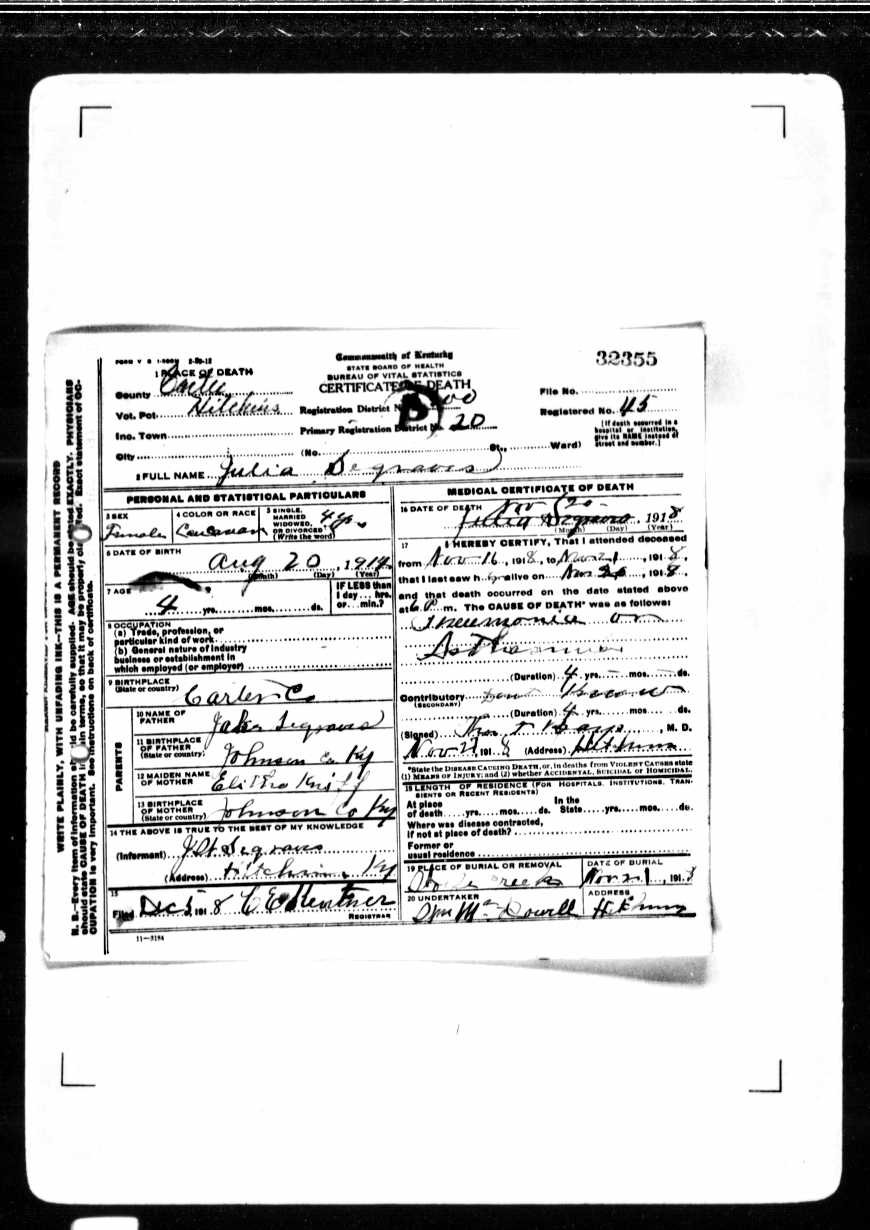 FORM V S 1-500M 2-20-12
Commonwealth of Kentucky
STATE BOARD OF HEALTH
BUREAU OF VITAL STATISTICS
CERTIFICATE OF DEATH
32355
1 PLACE OF DEATH
County Carter
Vot. Pct. Hitchins
Registration District No.
File No.
Inc. Town
Primary Registration District No. 20
Registered No. 45
[If death occurred in a hospital or institution, give its NAME instead of street and number.]
City (No. St., Ward)
2 FULL NAME Julia Segraves
PERSONAL AND STATISTICAL PARTICULARS
3 SEX
Female
4 COLOR OR RACE
Caucasian
5 SINGLE, MARRIED WIDOWED, OR DIVORCED
(Write the word)
6 DATE OF BIRTH
Aug 20, 1914
(Month) (Day) (Year)
7 AGE
4 yrs. mos. ds.
IF LESS than 1 day ... hrs. or ... min.?
8 OCCUPATION
(a) Trade, profession, or particular kind of work
(b) General nature of industry business or establishment in which employed (or employer)
9 BIRTHPLACE
(State or country)
Carter Co
PARENTS
10 NAME OF FATHER
Jake Segraves
11 BIRTHPLACE OF FATHER
(State or country)
Johnson Co Ky
12 MAIDEN NAME OF MOTHER
13 BIRTHPLACE OF MOTHER
(State or country)
Johnson Co Ky
14 THE ABOVE IS TRUE TO THE BEST OF MY KNOWLEDGE
(Informant) Segraves
(Address) Hitchins, Ky
15
Filed Dec 5 1918
REGISTRAR
11—3184
MEDICAL CERTIFICATE OF DEATH
16 DATE OF DEATH
Nov 20
Julia Segraves, 1918
(Month) (Day) (Year)
17 I HEREBY CERTIFY, That I attended deceased
from Nov 16, 1918, to Nov 21, 1918,
that I last saw h er alive on Nov 20, 1918,
and that death occurred on the date stated above
at 6 P m. The CAUSE OF DEATH* was as follows:
Pneumonia
(Duration) 4 yrs. mos. ds.
Contributory Dont Know
(SECONDARY)
(Duration) 4 yrs. mos. ds.
(Signed) M. D.
Nov 21, 1918 (Address) Hitchins
*State the DISEASE CAUSING DEATH, or, in deaths from VIOLENT CAUSES state
(1) MEANS OF INJURY; and (2) whether ACCIDENTAL, SUICIDAL or HOMICIDAL.
18 LENGTH OF RESIDENCE (FOR HOSPITALS, INSTITUTIONS, TRANSIENTS OR RECENT RESIDENTS)
At place of death yrs. mos. ds. In the State yrs. mos. ds.
Where was disease contracted,
if not at place of death?
Former or
usual residence
19 PLACE OF BURIAL OR REMOVAL
Creek
DATE OF BURIAL
Nov 21, 1918
20 UNDERTAKER
McDowell
ADDRESS
WRITE PLAINLY, WITH UNFADING INK—THIS IS A PERMANENT RECORD
N. B.—Every item of information should be carefully supplied. AGE should be stated EXACTLY. PHYSICIANS
should state CAUSE OF DEATH in plain terms, so that it may be properly classified. Exact statement of OC-
CUPATION is very important. See instructions on back of certificate.